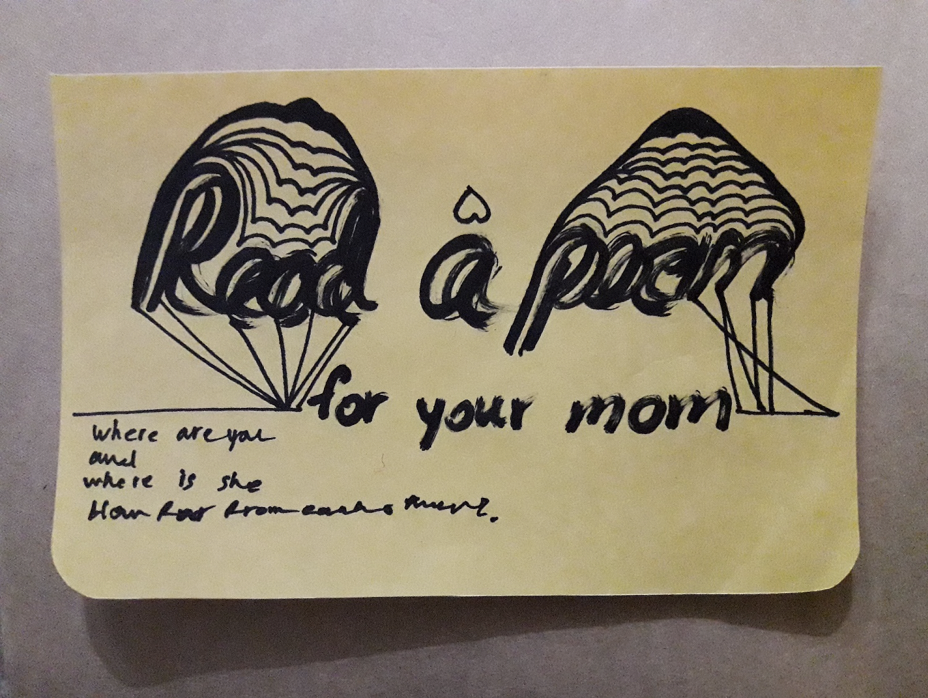 Read a poem
for your mom
where are you
and
where is she
How far from each other?